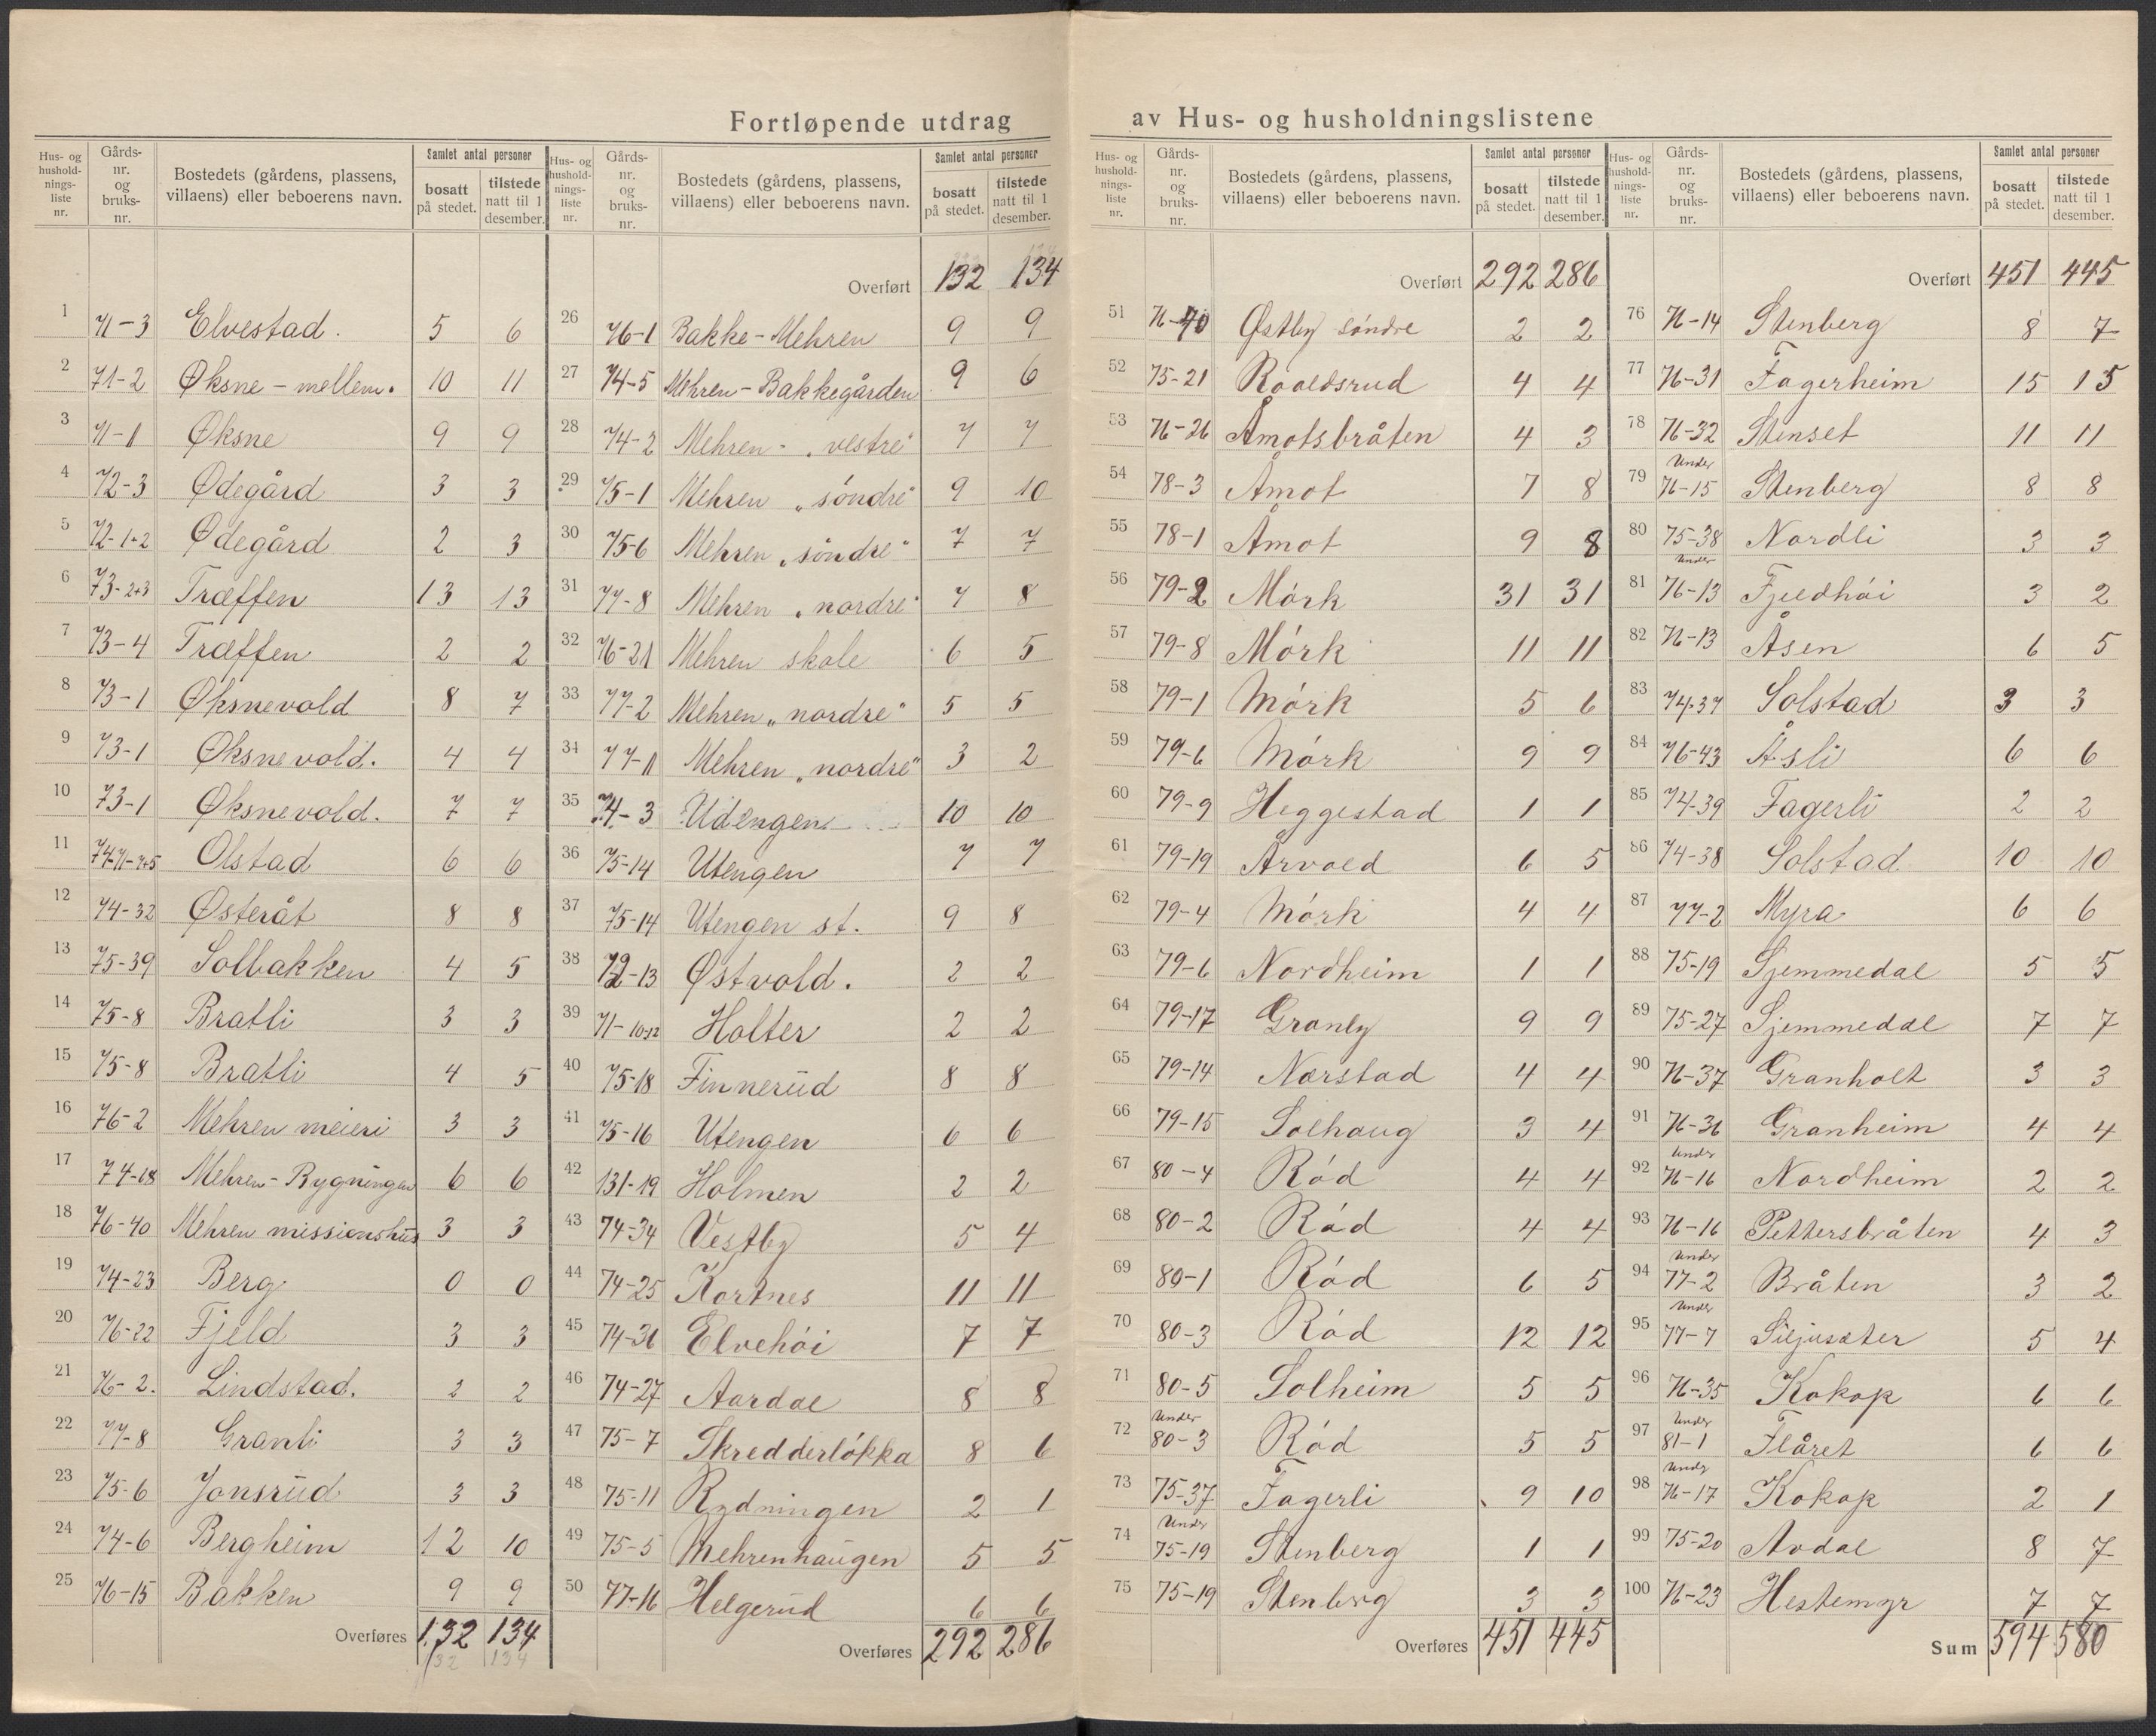 Fortløpende utdrag av Hus- og husholdningslistene
Hus- og husholdnings-liste nr. Gårds-nr. og bruks-nr. Bostedets (gårdens, plassens, villaens) eller beboerens navn. Samlet antal personer bosatt på stedet. tilstede natt til 1 desember.
1 71-3 Elvestad. 5 6
2 71-2 Øksne - mellem. 10 11
3 71-1 Øksne 9 9
4 72-3 Ødegård 3 3
5 72-1+2 Ødegård 2 3
6 73-2+3 Træffen 13 13
7 73-4 Træffen 2 2
8 73-1 Øksnevold 8 7
9 73-1 Øksnevold. 4 4
10 73-1 Øksnevold. 7 7
11 Olstad 6 6
12 74-32 Østeråt 8 8
13 75-39 Solbakken 4 5
14 75-8 Bratli 3 3
15 75-8 Bratli 4 5
16 76-2 Mehren meieri 3 3
17 74-18 Mehren - Bygningen 6 6
18 76-40 Mehren missionshus 3 3
19 74-23 Berg 0 0
20 76-22 Fjeld 3 3
21 76-2. Lindstad. 2 2
22 77-8 Granli 3 3
23 75-6 Jonsrud 3 3
24 74-6 Bergheim 12 10
25 76-15 Bakken 9 9
Overføres 132 134
132 134
Hus- og husholdnings-liste nr. Gårds-nr. og bruks-nr. Bostedets (gårdens, plassens, villaens) eller beboerens navn. Samlet antal personer bosatt på stedet. tilstede natt til 1 desember.
Overført 132 134
26 76-1 Bakke - Mehren 9 9
27 74-5 Mehren - Bakkegården 9 6
28 74-2 Mehren - „vestre" 7 7
29 75-1 Mehren „søndre" 9 10
30 75-6 Mehren „søndre" 7 7
31 77-8 Mehren „nordre" 7 8
32 76-21 Mehren skole 6 5
33 77-2 Mehren „nordre" 5 5
34 77-1 Mehren „nordre" 3 2
35 74-3 Udengen 10 10
36 75-14 Utengen 7 7
37 75-14 Utengen st. 9 8
38 72-13 Østvold. 2 2
39 71-10+12 Holter 2 2
40 75-18 Finnerud 8 8
41 75-16 Utengen 6 6
42 131-19 Holmen 2 2
43 74-34 Vestby 5 4
44 74-25 Kortnes 11 11
45 74-31 Elvehøi 7 7
46 74-27 Aardal 8 8
47 75-7 Skredderløkka 8 6
48 75-11 Rydningen 2 1
49 75-5 Mehrenhaugen 5 5
50 77-16 Helgerud 6 6
Overføres 292 286
Hus- og husholdnings-liste nr. Gårds-nr. og bruks-nr. Bostedets (gårdens, plassens, villaens) eller beboerens navn. Samlet antal personer bosatt på stedet. tilstede natt til 1 desember.
Overført 292 286
51 76-40 Østby søndre 2 2
52 75-21 Roaldsrud 4 4
53 76-26 Åmotsbråten 4 3
54 78-3 Åmot 7 8
55 78-1 Åmot 9 8
56 79-2 Mørk 31 31
57 79-8 Mørk 11 11
58 79-1 Mørk 5 6
59 79-6 Mørk 9 9
60 79-9 Heggestad 1 1
61 79-19 Årvold 6 5
62 79-4 Mørk 4 4
63 79-6 Nordheim 1 1
64 79-17 Granly 9 9
65 79-14 Nærstad 4 4
66 79-15 Solhaug 3 4
67 80-4 Rød 4 4
68 80-2 Rød 4 4
69 80-1 Rød 6 5
70 80-3 Rød 12 12
71 80-5 Solheim 5 5
72 Under 80-3 Rød 5 5
73 75-37 Fagerli 9 10
74 Under 75-19 Stenberg 1 1
75 75-19 Stenberg 3 3
Overføres 451 445
Hus- og husholdnings-liste nr. Gårds-nr. og bruks-nr. Bostedets (gårdens, plassens, villaens) eller beboerens navn. Samlet antal personer bosatt på stedet. tilstede natt til 1 desember.
Overført 451 445
76 76-14 Stenberg 8 7
77 76-31 Fagerheim 15 15
78 76-32 Stenset 11 11
79 Under 76-15 Stenberg 8 8
80 75-38 Nordli 3 3
81 Under 76-13 Fjeldhøi 3 2
82 76-13 Åsen 6 5
83 74-37 Solstad 3 3
84 76-43 Åsli 6 6
85 74-39 Fagerli 2 2
86 74-38 Solstad 10 10
87 77-2 Myra 6 6
88 75-19 Sjemmedal 5 5
89 75-27 Sjemmedal 7 7
90 76-37 Granholt 3 3
91 76-36 Granheim 4 4
92 Under 76-16 Nordheim 2 2
93 76-16 Pettersbråten 4 3
94 Under 77-2 Bråten 3 2
95 Under 77-7 Siljusæter 5 4
96 76-35 Kokop 6 6
97 Under 81-1 Flåret 6 6
98 Under 76-17 Kokop 2 1
99 75-20 Avdal 8 7
100 76-23 Hestemyr 7 7
Sum 594 580